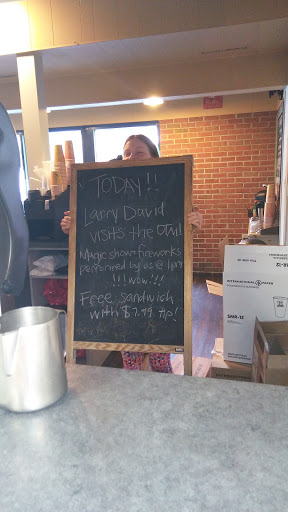 TODAY!!
Larry David
VISITS the OWl
Magic show + fireworks
performed by us @ 1pm
!!!WOW!!!
Free sandwich
with $7.99 tip!
INTERNATIONAL PAPER
SMR-12